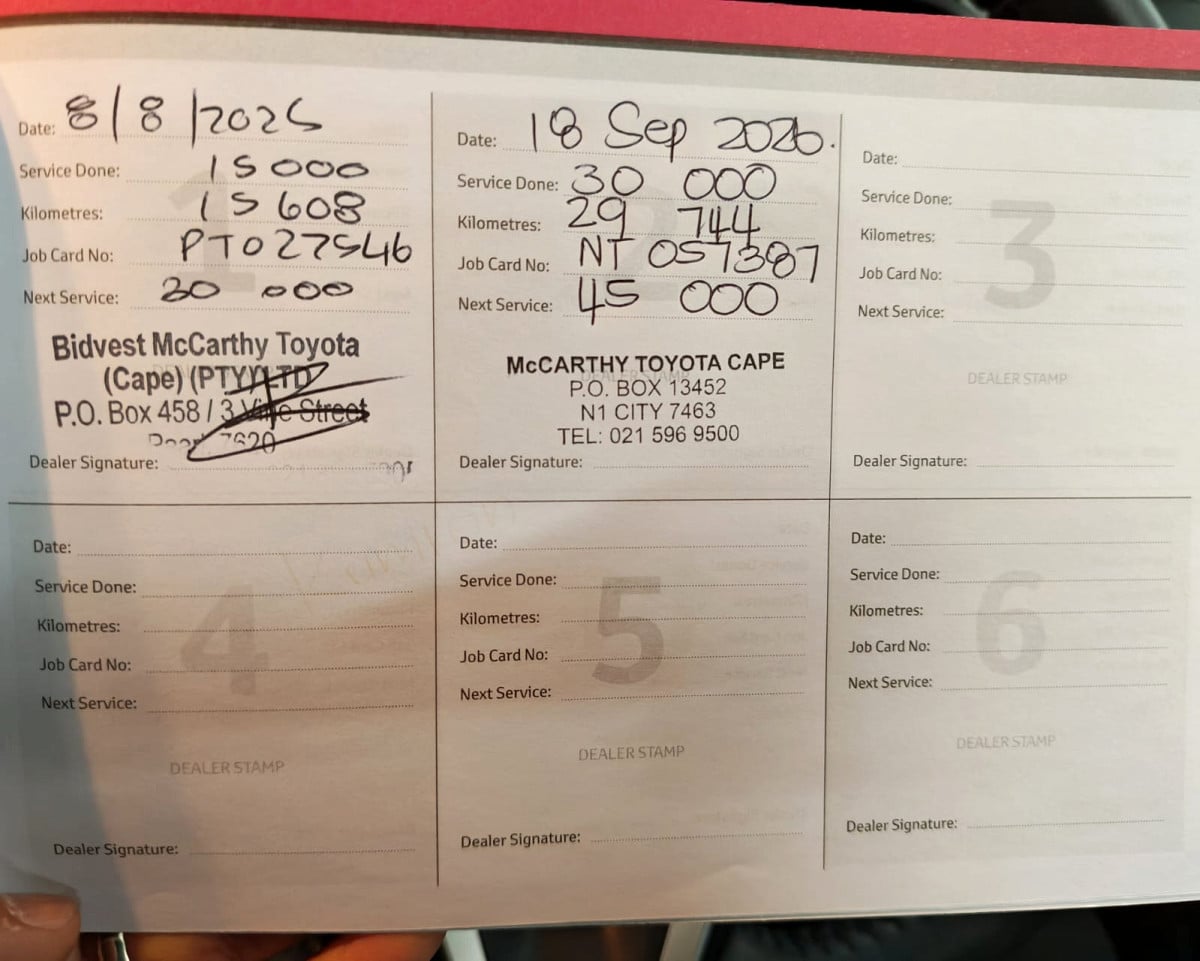 Date: 8/8/2025
Service Done: 15000
Kilometres: 15608
Job Card No: PT027546
Next Service: 30 000
1
Bidvest McCarthy Toyota
(Cape) (PTY) LTD
P.O. Box 458 / 3 Vine Street
7620
Dealer Signature:
Date: 18 Sep 2026.
Service Done: 30 000
Kilometres: 29 744
Job Card No: NT 057387
Next Service: 45 000
2
McCARTHY TOYOTA CAPE
DEALER STAMP
P.O. BOX 13452
N1 CITY 7463
TEL: 021 596 9500
Dealer Signature:
Date:
Service Done:
Kilometres:
Job Card No:
Next Service:
3
DEALER STAMP
Dealer Signature:
Date:
Service Done:
Kilometres:
Job Card No:
Next Service:
4
DEALER STAMP
Dealer Signature:
Date:
Service Done:
Kilometres:
Job Card No:
Next Service:
5
DEALER STAMP
Dealer Signature:
Date:
Service Done:
Kilometres:
Job Card No:
Next Service:
6
DEALER STAMP
Dealer Signature: